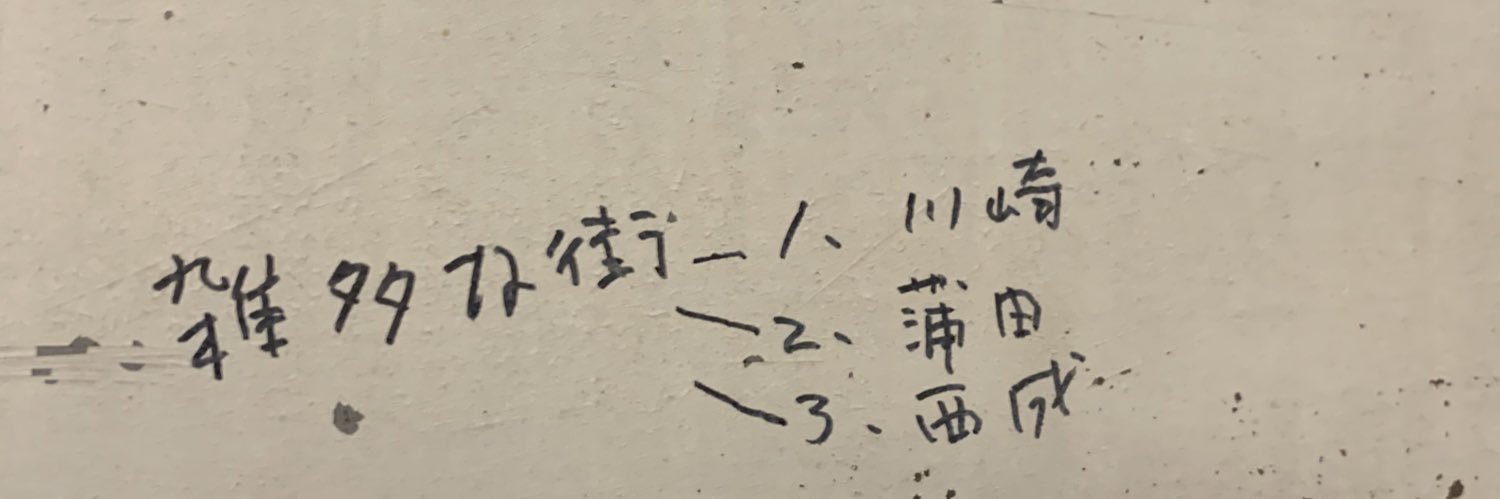 雑多な街
1、川崎
2、蒲田
3、西成